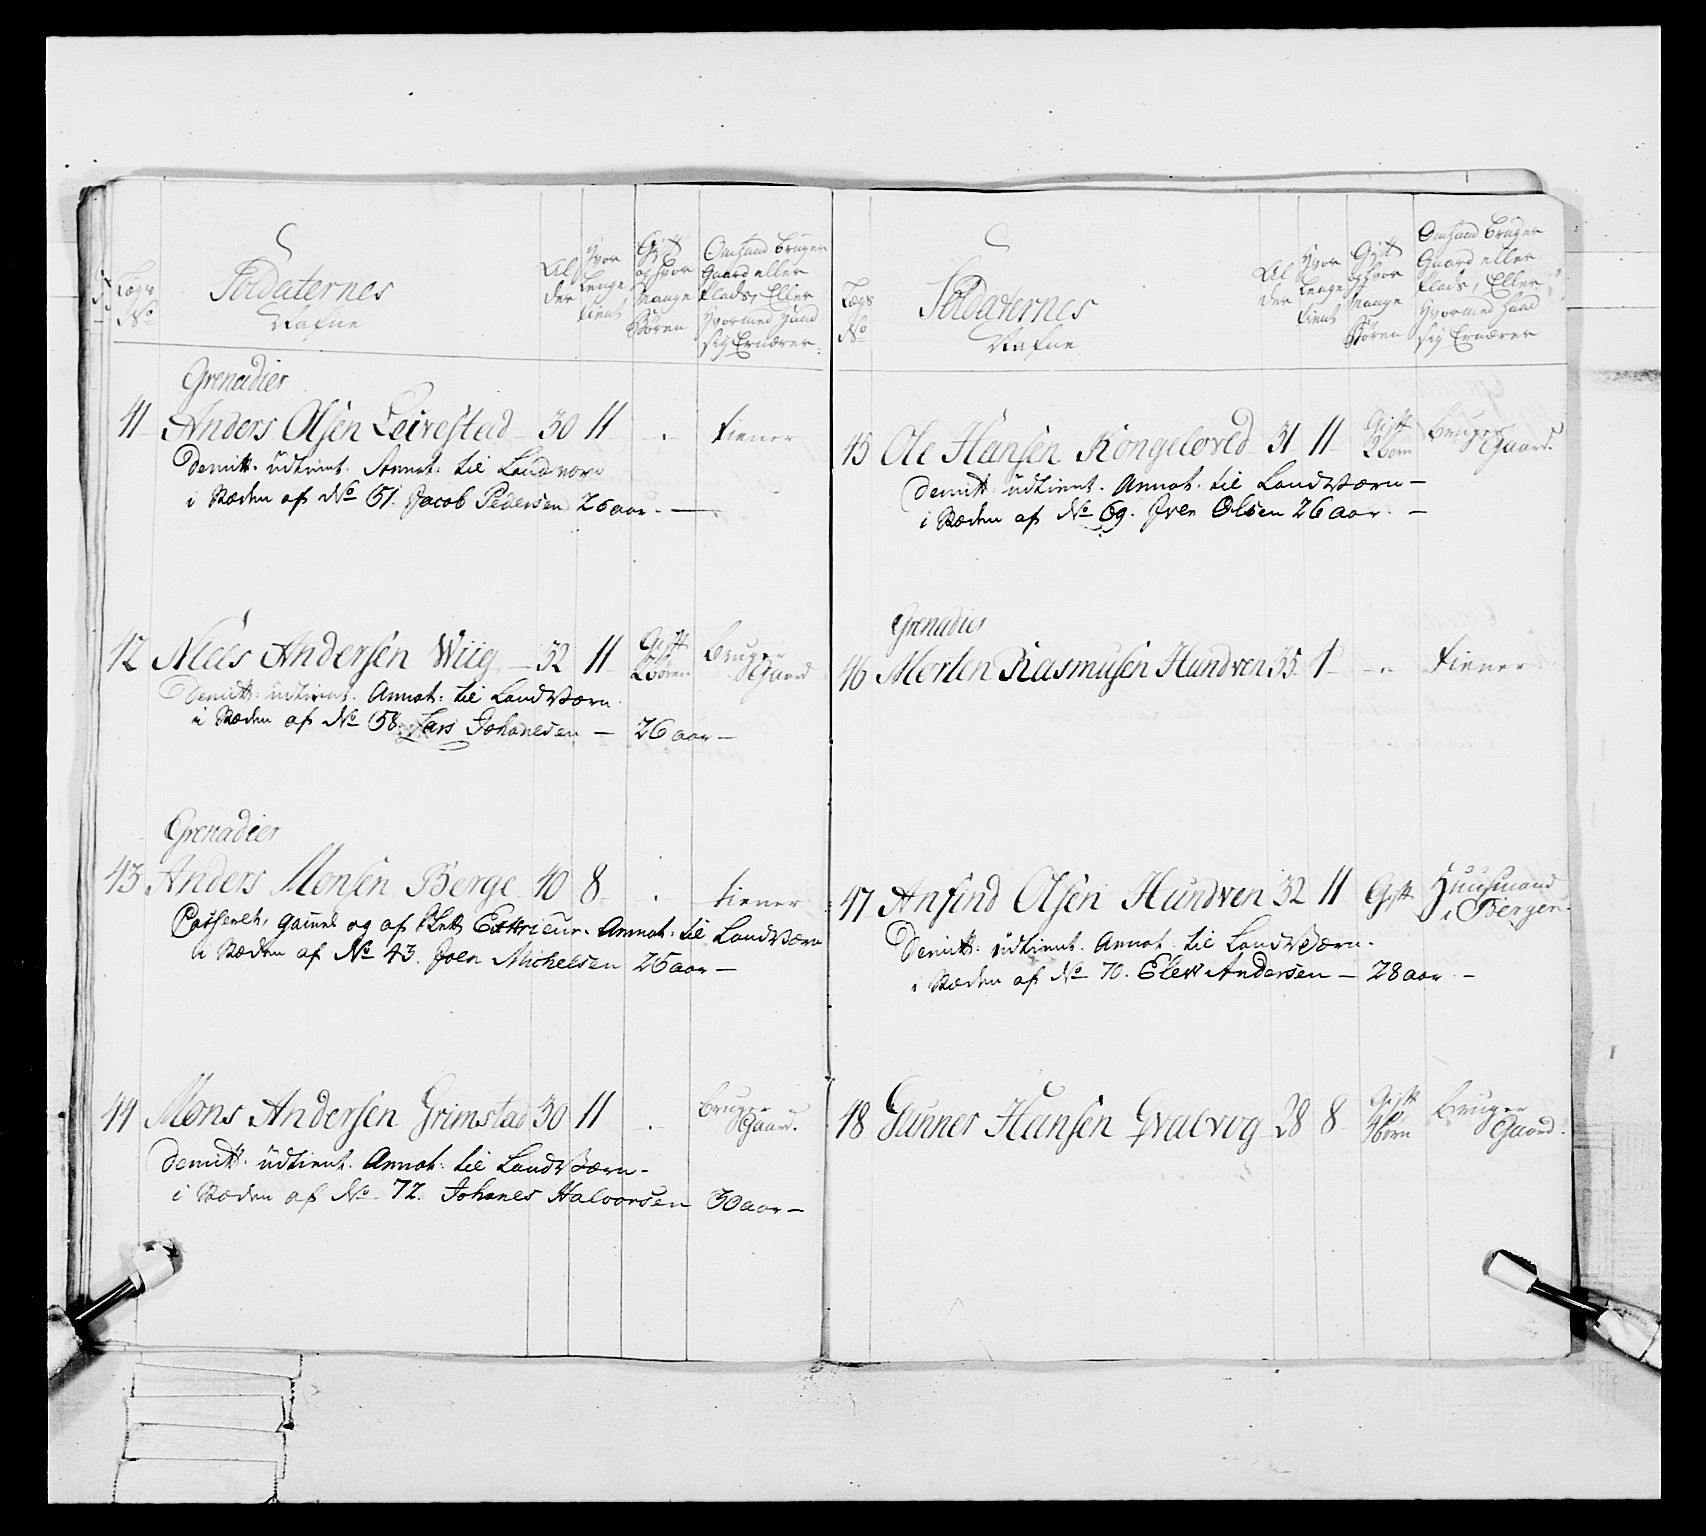 Lægs
No
Soldaternes
Nafne
Al
der
Hvor
Lenge
tient
Gift
og hvor
Mange
Børen
Om hand bruger
Gaard eller
Plads, Eller
Hvormed Hand
sig Ernærer
Grenadier
41 Anders Olsen Leirestad 30 11 - tiener
Demitt. udtient. Annot. til Landværn
i Stæden af No 61. Jacob Pedersen 26 aar. —
42 Niels Andersen Wiig 32 11 Gift 2 børen Bruger Gaard
Demitt. udtient. Annot. til LandVærn
i Stæden af No 58. Lars Johanesen — 26 aar —
Grenadier
43 Anders Monsen Berge 40 8 - tiener
Casseret, gamel og af slett Extrieur. Annot. til LandVærn
i Stæden af No 43. Joen Michelsen 25 aar —
44 Mons Andersen Grimstad 30 11 - bruger Gaard.
Demitt. udtient. Annot. til LandVærn.
i Stæden af No 72. Johanes Halvorsen 30 aar —
Lægs
No
Soldaternes
Nafne
Al
der
Hvor
Lenge
tient
Gift
og hvor
Mange
Børen
Om hand bruger
Gaard eller
Plads, Eller
Hvormed Hand
sig Ernærer
45 Ole Hansen Kongeløved 31 11 Gift 2 børn bruger Gaard.
Demitt. udtient. Annot. til LandVærn —
i Stæden af No 69. Iver Olsen 26 aar. —
Grenadier
46 Morten Rasmusen Hundven 35 1 - tiener
47 Anfind Olsen Hundven 32 11 Gift Huusmand i Bergen.
Demitt. udtient. Annot. til LandVærn.
i Stæden af No 70. Elev Andersen — 28 aar —
48 Gunner Hansen Qvalvog 28 8 Gift 4 børn bruger Gaard.